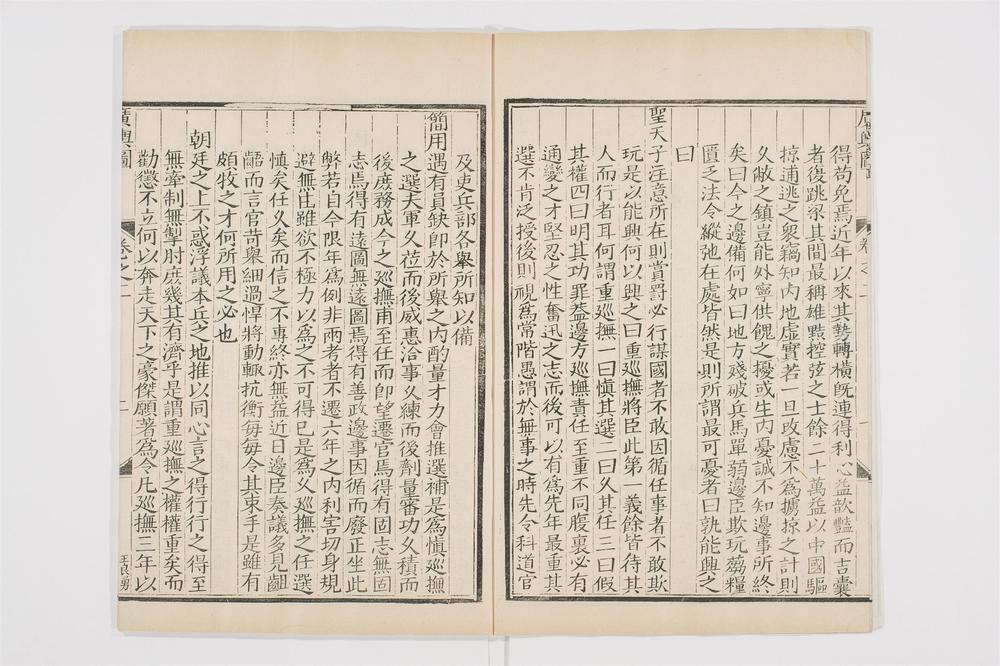 得苟免焉近年以來其勢轉橫旣連得利心益歆豔而吉囊
者復跳梁其間最稱雄黠控弦之士餘二十萬益以中國驅
掠逋逃之衆竊知内地虛實若一旦攻慮不爲擄掠之計則
久敝之鎮豈能外寧供餽之擾或生内憂誠不知邊事所終
矣曰今之邊備何如曰地方殘破兵馬單弱邊臣欺玩蒭糧
匱乏法令縱弛在處皆然是則所謂最可憂者曰孰能興之
曰
聖天子注意所在則賞罰必行謀國者不敢因循任事者不敢欺
玩是以能興何以興之曰重巡撫將臣此第一義餘皆待其
人而行者耳何謂重巡撫一曰慎其選二曰久其任三曰假
其權四曰明其功罪葢邊方巡撫責任至重不同腹裏必有
通變之才堅忍之性奮迅之志而後可以有爲先年最重其
選不肯泛授後則視爲常階愚謂於無事之時先令科道官
卷之二
及吏兵部各舉所知以備
簡用遇有員缺卽於所舉之内酌量才力會推選補是爲慎巡撫
之選夫軍久莅而後威惠洽事久練而後劑量審功久積而
後庶務成今之巡撫甫至任而卽望遷官焉得有固志無固
志焉得有遠圖無遠圖焉得有善政邊事因循而廢正坐此
弊若自今限年爲例非兩考者不遷六年之内利害切身規
避無由雖欲不極力以爲之不可得已是爲久巡撫之任選
慎矣任久矣而信之不專終亦無益近日邊臣奏議多見齟
齬而言官苛舉細過悍將動輒抗衡每每令其束手是雖有
頗牧之才何所用之必也
朝廷之上不惑浮議本兵之地推以同心言之得行行之得至
無牽制無掣肘庶幾其有濟乎是謂重巡撫之權權重矣而
勸懲不立何以奔走天下之豪傑願著爲令凡巡撫三年以
廣輿圖
卷之二
二